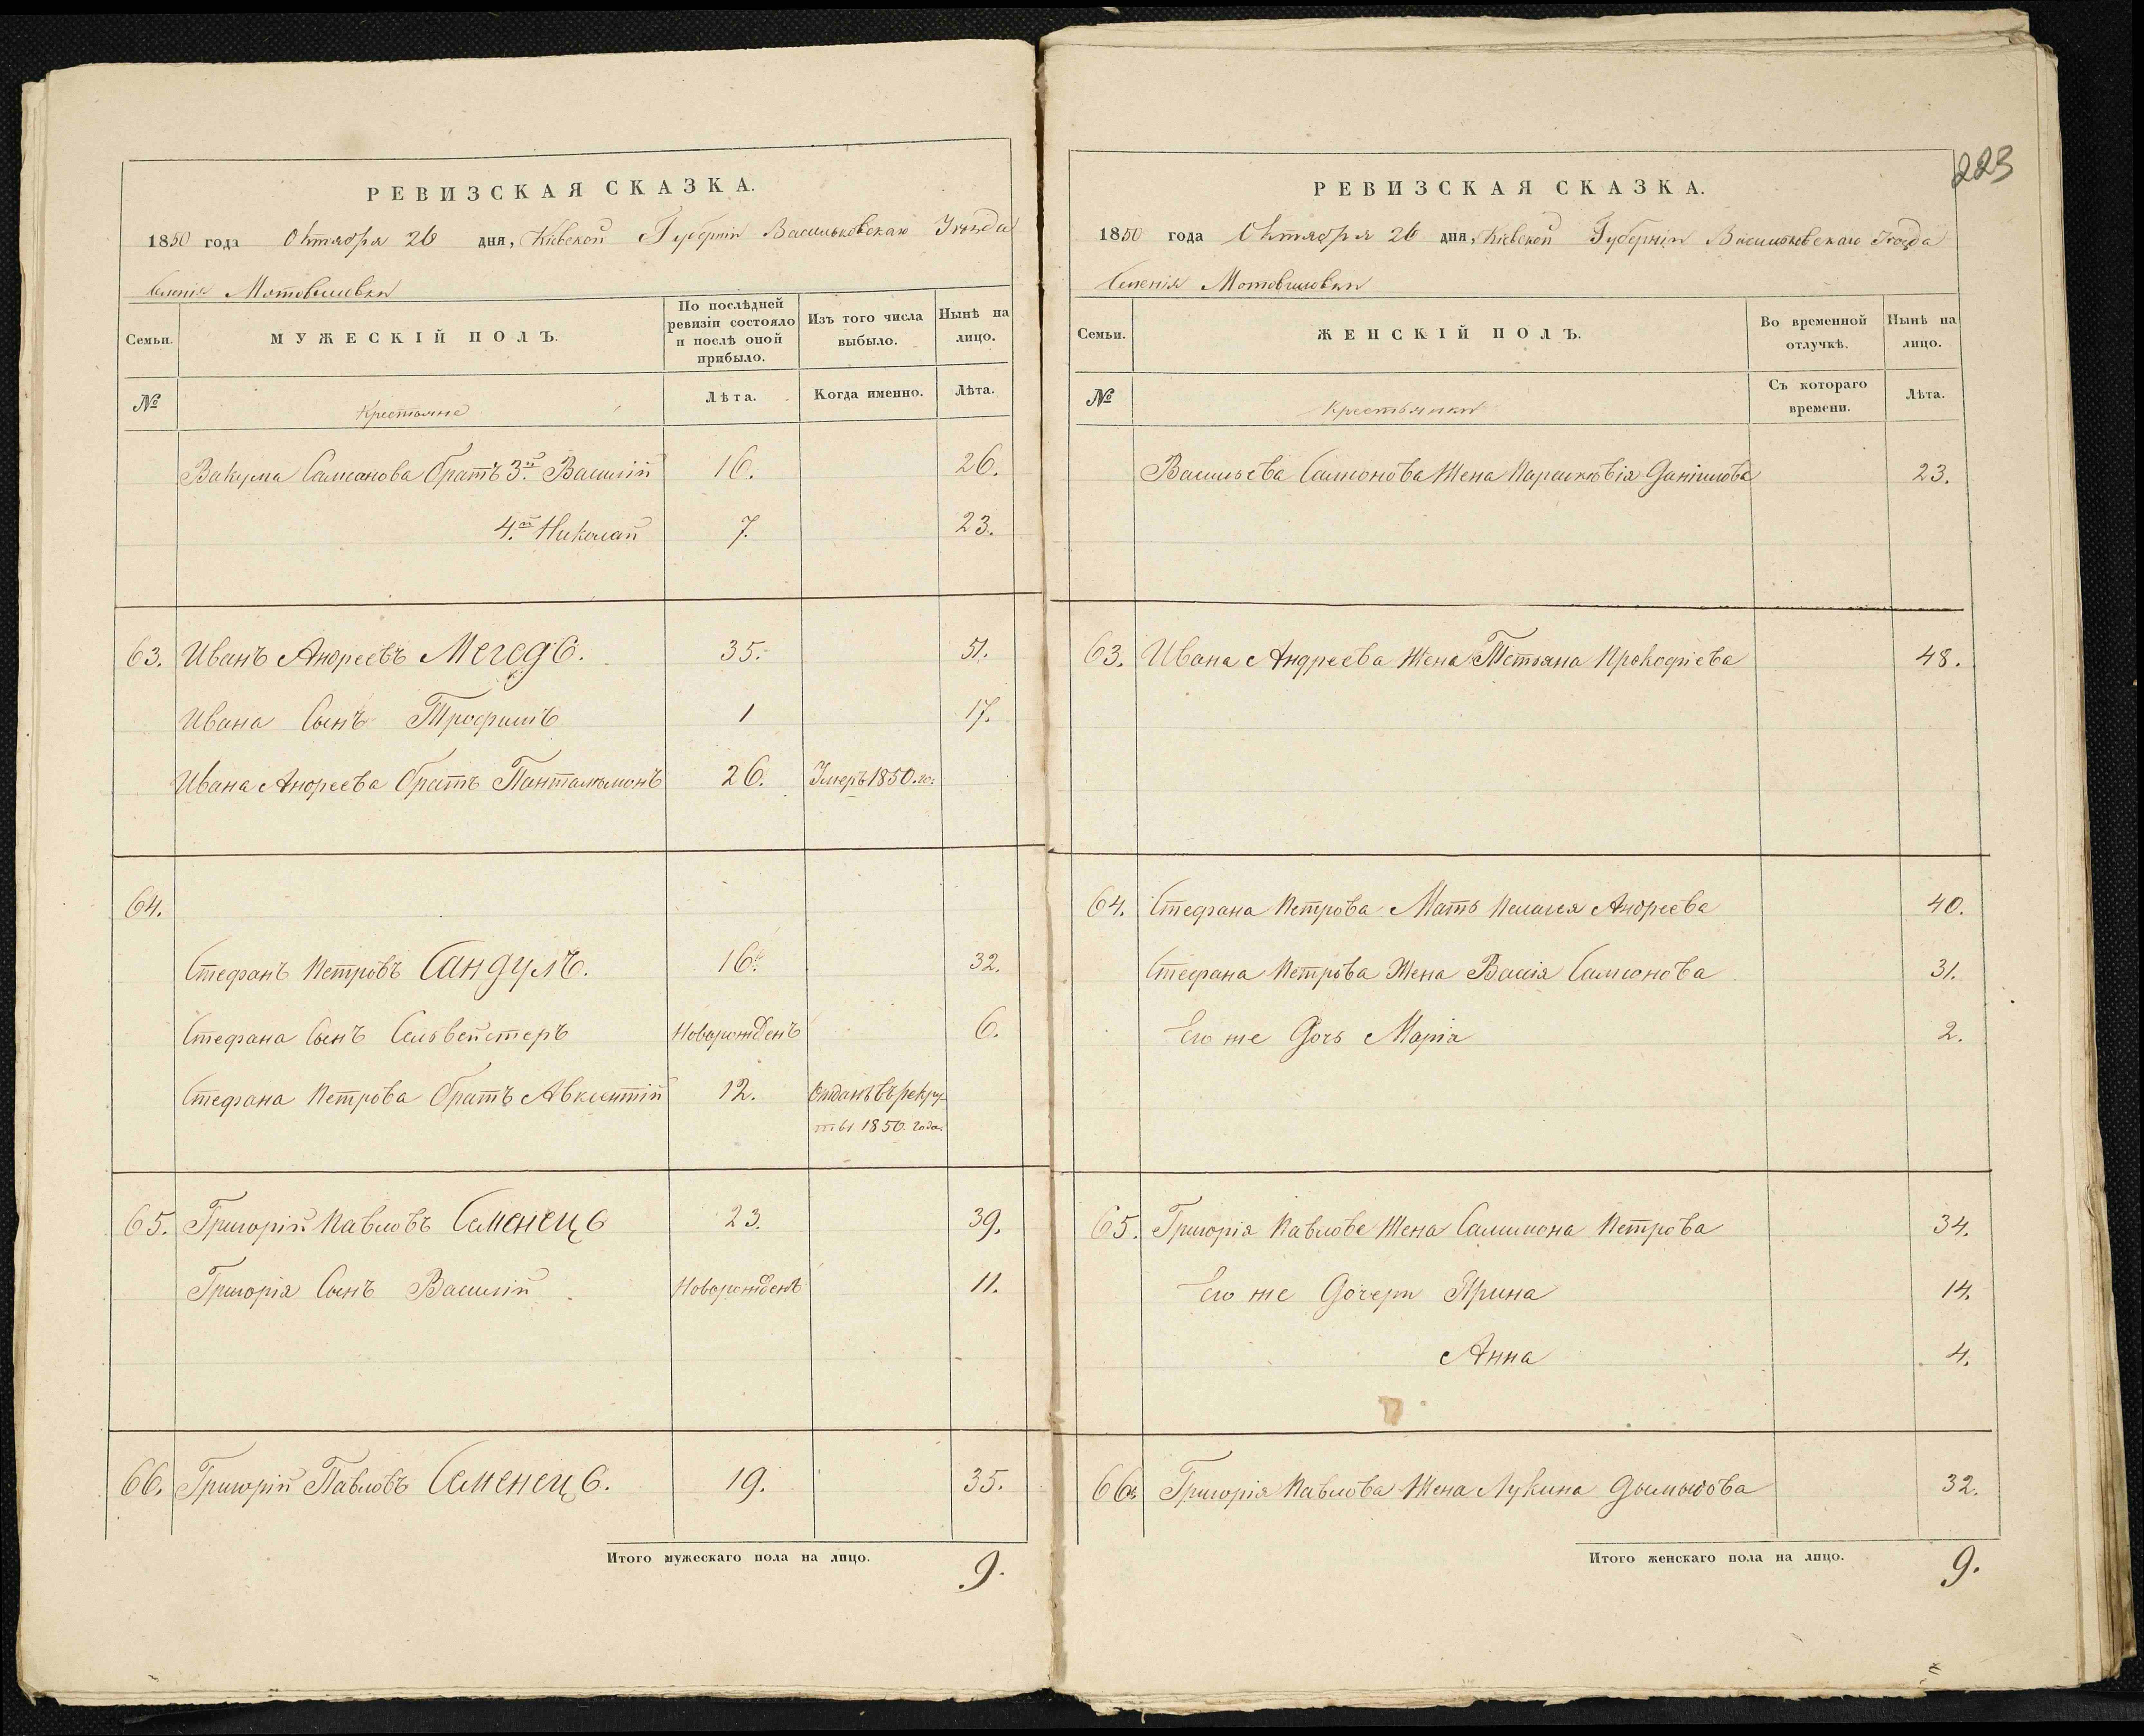 РЕВИЗСКАЯ СКАЗКА.
1850 года Октября 26 дня, Кіевской Губерніи Васильковскаго Уѣзда
Селенія Мотовиловки
Семьи.
МУЖЕСКІЙ ПОЛЪ.
По послѣдней
ревизіи состояло
и послѣ оной
прибыло.
Изъ того числа
выбыло.
Нынѣ на
лицо.
№
Крестьяне
Лѣта.
Когда именно.
Лѣта.
Вакума Самсонова братъ 3й Василій 16. 26.
4й Николай 7. 23.
63. Иванъ Андреевъ Мегедь. 35. 51.
Ивана Сынъ Трофимъ 1 17.
Ивана Андреева братъ Панталимонъ 26. Умеръ 1850.го:
64.
Стефанъ Петровъ Сандулъ. 16. 32.
Стефана Сынъ Сильвейстеръ Новорожденъ 6.
Стефана Петрова братъ Авксентій 12. Отданъ въ рекру-
ты 1850. года.
65. Григорій Павловъ Семенець 23. 39.
Григорія Сынъ Василій Новорожденъ 11.
66. Григорій Павловъ Семенець. 19. 35.
Итого мужескаго пола на лицо. 9.
223
РЕВИЗСКАЯ СКАЗКА.
1850 года Октября 26 дня, Кіевской Губерніи Васильковскаго Уѣзда
Селенія Мотовиловки
Семьи.
ЖЕНСКІЙ ПОЛЪ.
Во временной
отлучкѣ.
Нынѣ на
лицо.
№
Крестьянки
Съ котораго
времени.
Лѣта.
Васильева Самсонова Жена Параскѣвія Данілова 23.
63. Ивана Андреева Жена Тетьяна Прокофіева 48.
64. Стефана Петрова Мать Пелагея Андреева 40.
Стефана Петрова Жена Васія Самсонова 31.
Его же Дочь Марія 2.
65. Григорія Павлове Жена Салимона Петрова 34.
Его же Дочери Ярина 14.
Анна 4.
66. Григорія Павлова Жена Лукина 32.
Итого женскаго пола на лицо. 9.